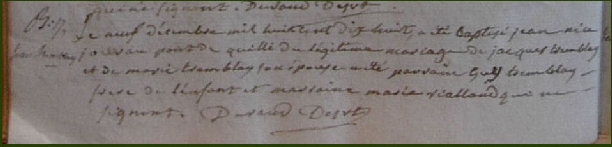 qui ne signent. Durand Desvt
B: 77. Le neuf décembre mil huit cent dix huit, a été baptisé jean né a
jean tremblay soir au pont de quillé du légitime mariage de jacques tremblay
et de marie tremblay son épouse a été parrain Guy tremblay
frere de l'enfant et marraine marie rialland qui ne
signent. Durand Desvt